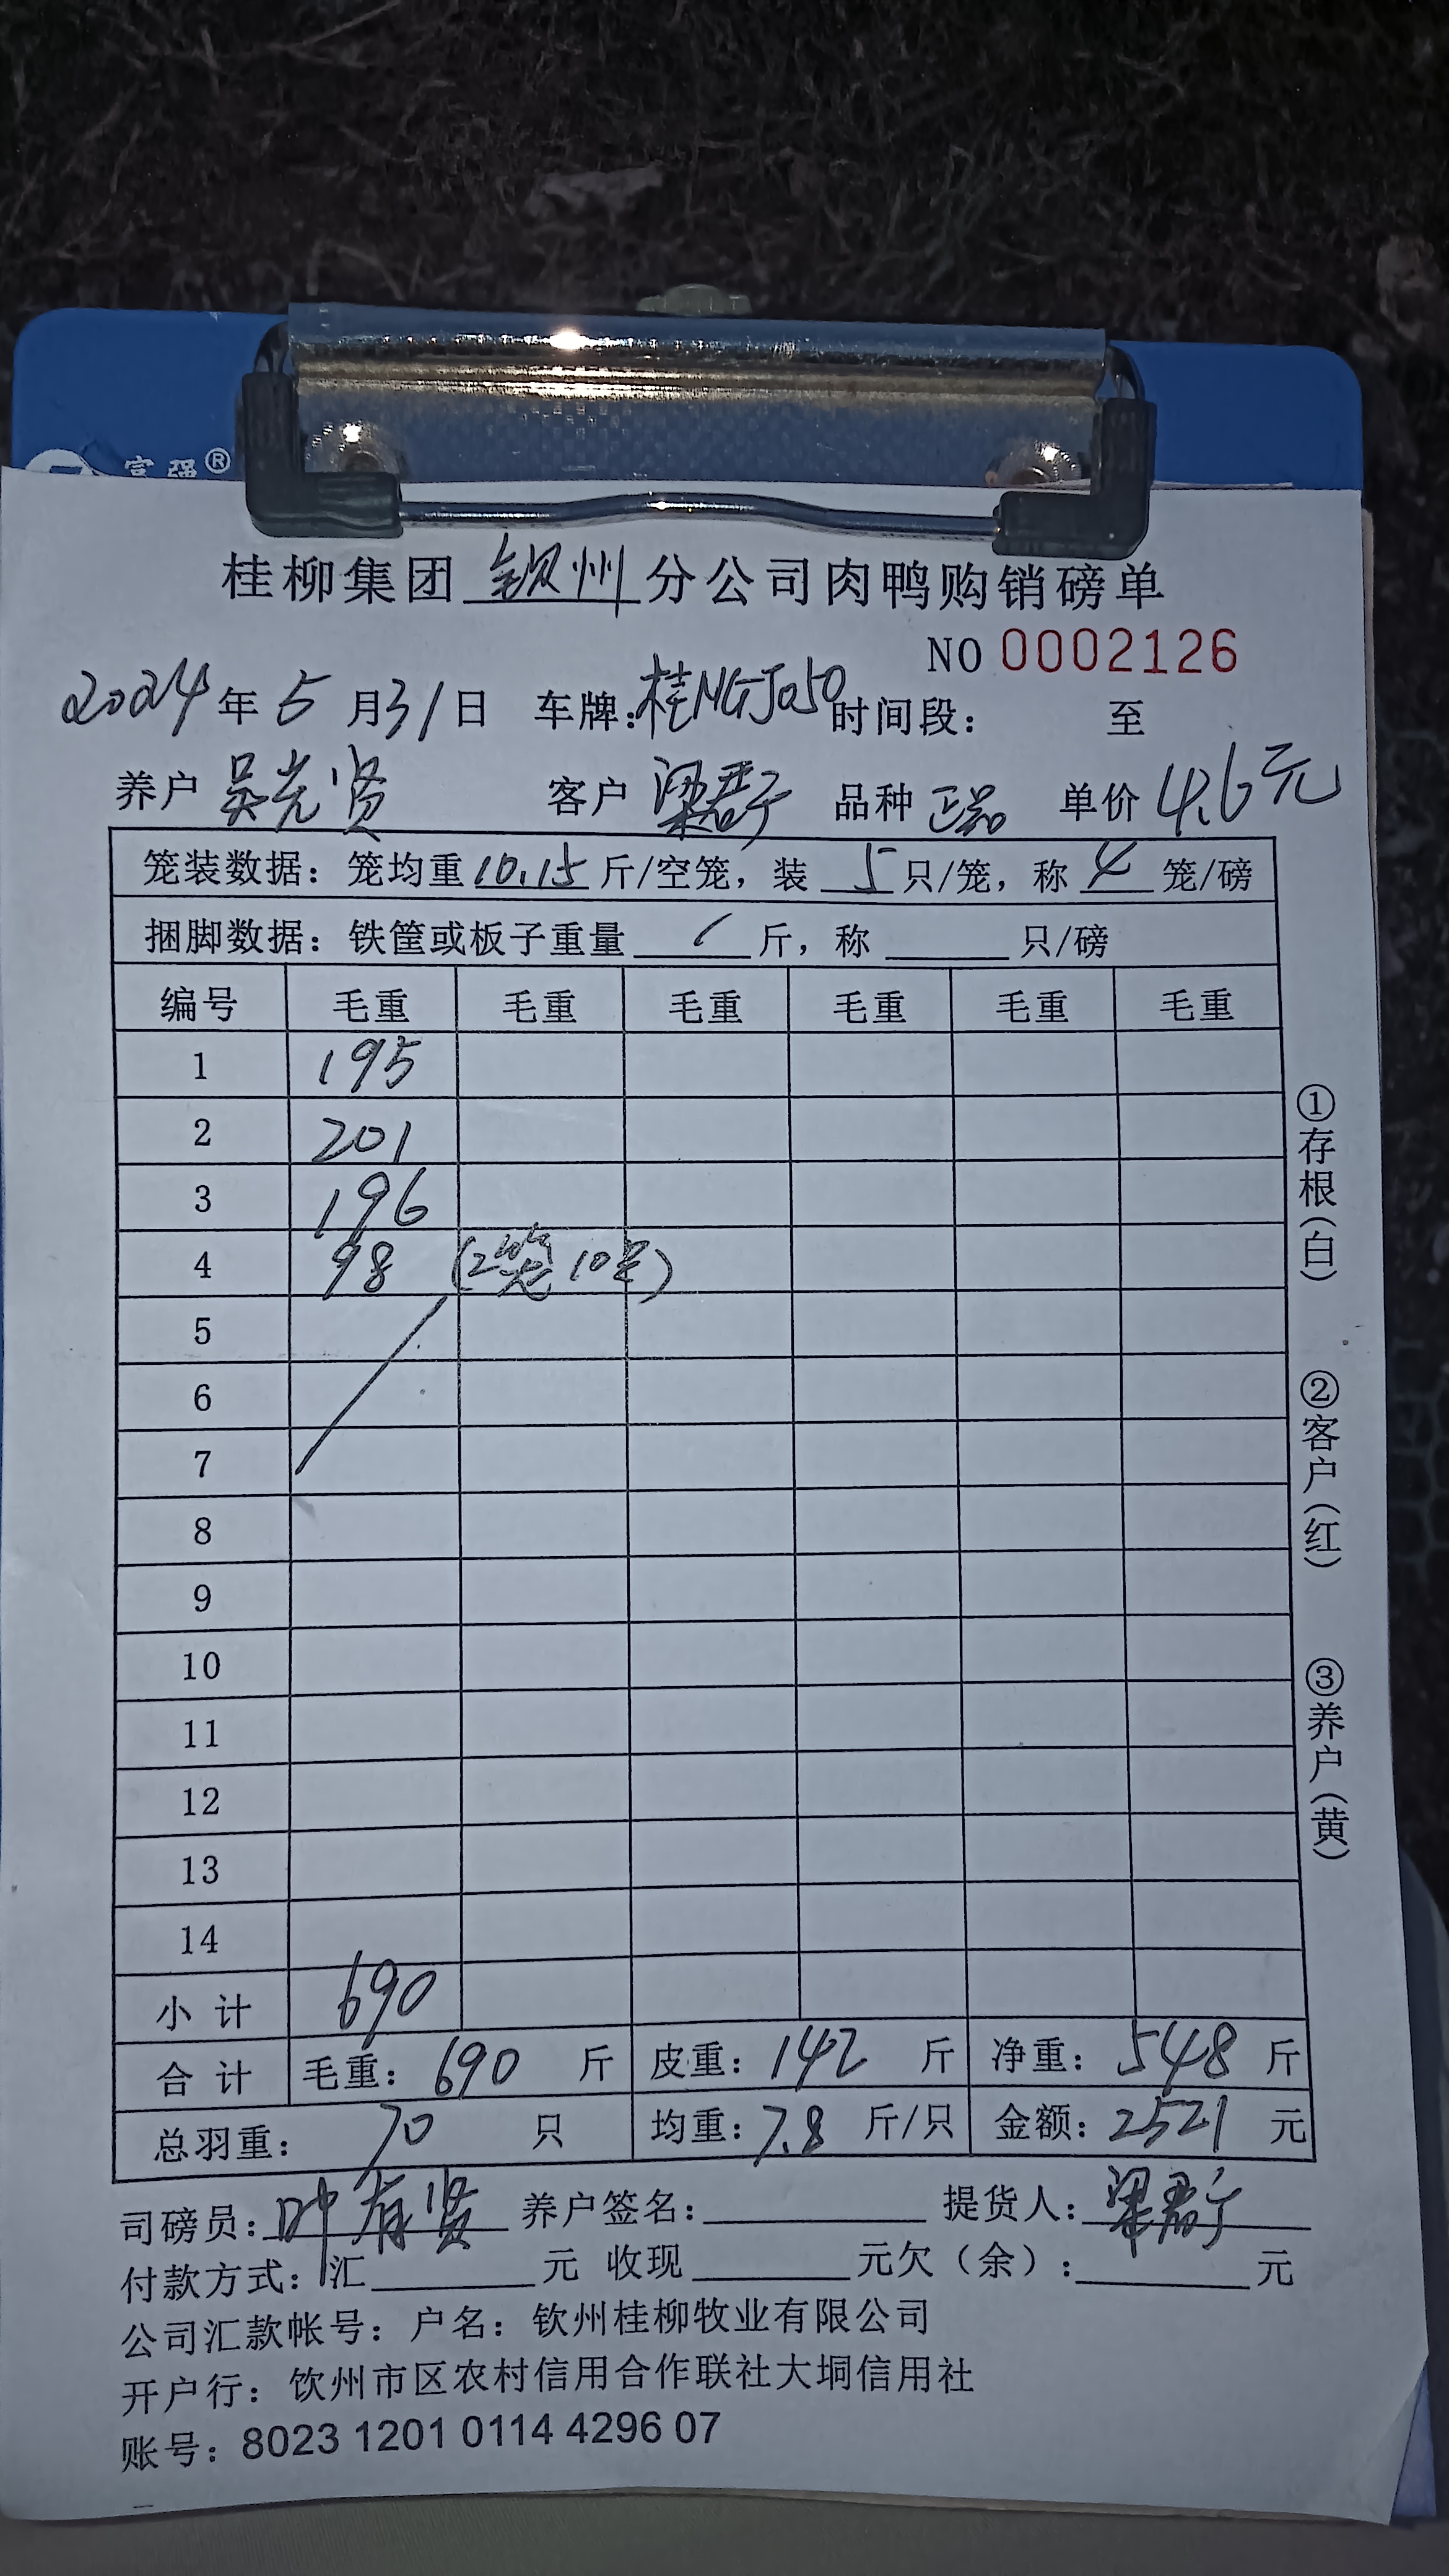 富强®
桂柳集团 钦州 分公司肉鸭购销磅单
NO 0002126
2024年5月31日 车牌:桂NGJ050 时间段: 至
养户 吴光贤 客户 梁君于 品种 正品 单价 4.6元
笼装数据: 笼均重10.15斤/空笼, 装5只/笼, 称4笼/磅
捆脚数据: 铁筐或板子重量 / 斤, 称 只/磅
编号 毛重 毛重 毛重 毛重 毛重 毛重
1 195
2 201
3 196
4 98 (2笼10只)
5
6
7
8
9
10
11
12
13
14
小计 690
合计 毛重: 690 斤 皮重: 142 斤 净重: 548 斤
总羽重: 70 只 均重: 7.8 斤/只 金额: 2521 元
司磅员: 叶有贤 养户签名: 提货人: 梁君于
付款方式: 汇 元 收现 元欠(余): 元
公司汇款帐号: 户名: 钦州桂柳牧业有限公司
开户行: 钦州市区农村信用合作联社大垌信用社
账号: 8023 1201 0114 4296 07
①存根(白)
②客户(红)
③养户(黄)